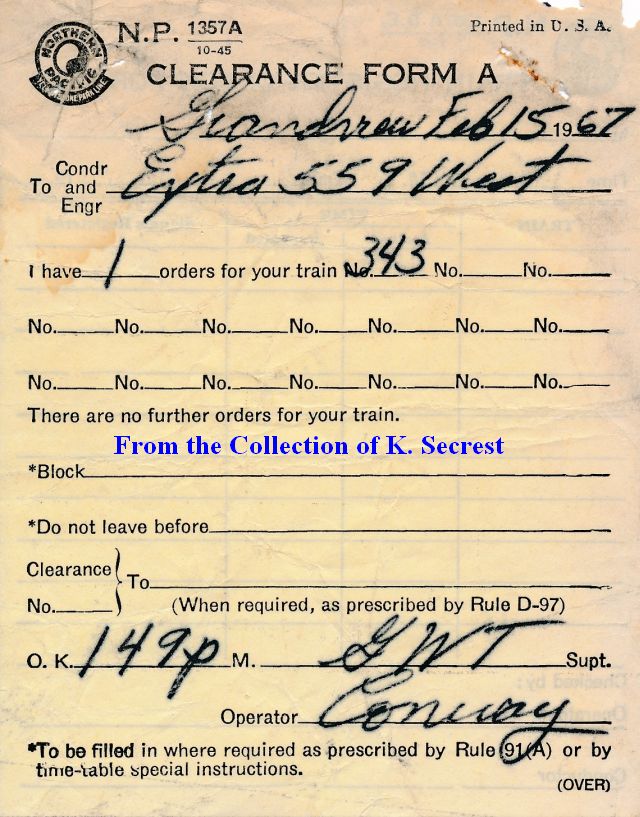 NORTHERN PACIFIC
YELLOWSTONE PARK LINE
N.P. 1357A
10-45
Printed in U. S. A.
CLEARANCE FORM A
Grandview Feb 15 1967
Condr
To and Extra 559 West
Engr
I have 1 orders for your train No. 343 No. No.
No. No. No. No. No. No. No.
No. No. No. No. No. No. No.
There are no further orders for your train.
From the Collection of K. Secrest
*Block
*Do not leave before
Clearance
To
No. (When required, as prescribed by Rule D-97)
O. K. 149p M. GWT Supt.
Operator Conway
*To be filled in where required as prescribed by Rule 91(A) or by
time-table special instructions.
(OVER)